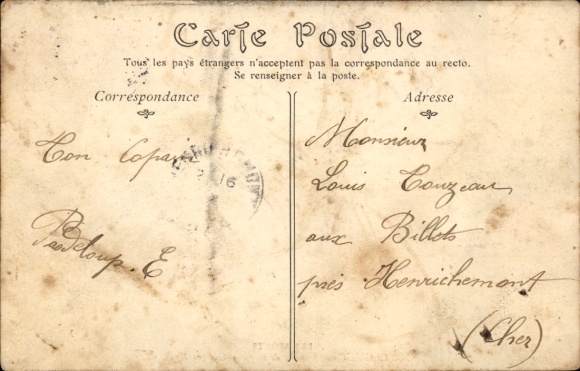 Carte Postale
Tous les pays étrangers n'acceptent pas la correspondance au recto.
Se renseigner à la poste.
Correspondance
Adresse
Ton Copain
E
Monsieur
Louis Touzeau
aux Billets
près Henrichemont
(Cher)
16